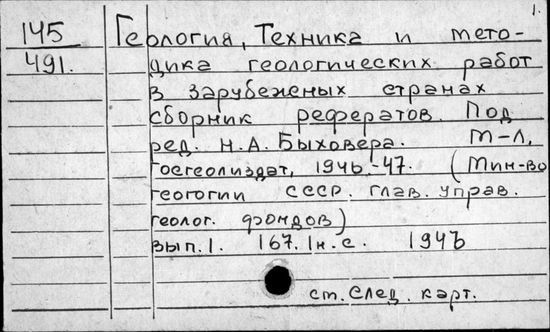 1.
145 Геология, Техника и мето-
491. дика геологических работ
в зарубежных странах
сборник рефератов. Под
ред. Н.А. Быховера. М-Л,
Госгеолиздат, 1946-47. (Мин-во
геогогии СССР. глав. управ.
геолог. фондов)
вып. 1. 167. 1н. с. 1946
ст. след. карт.